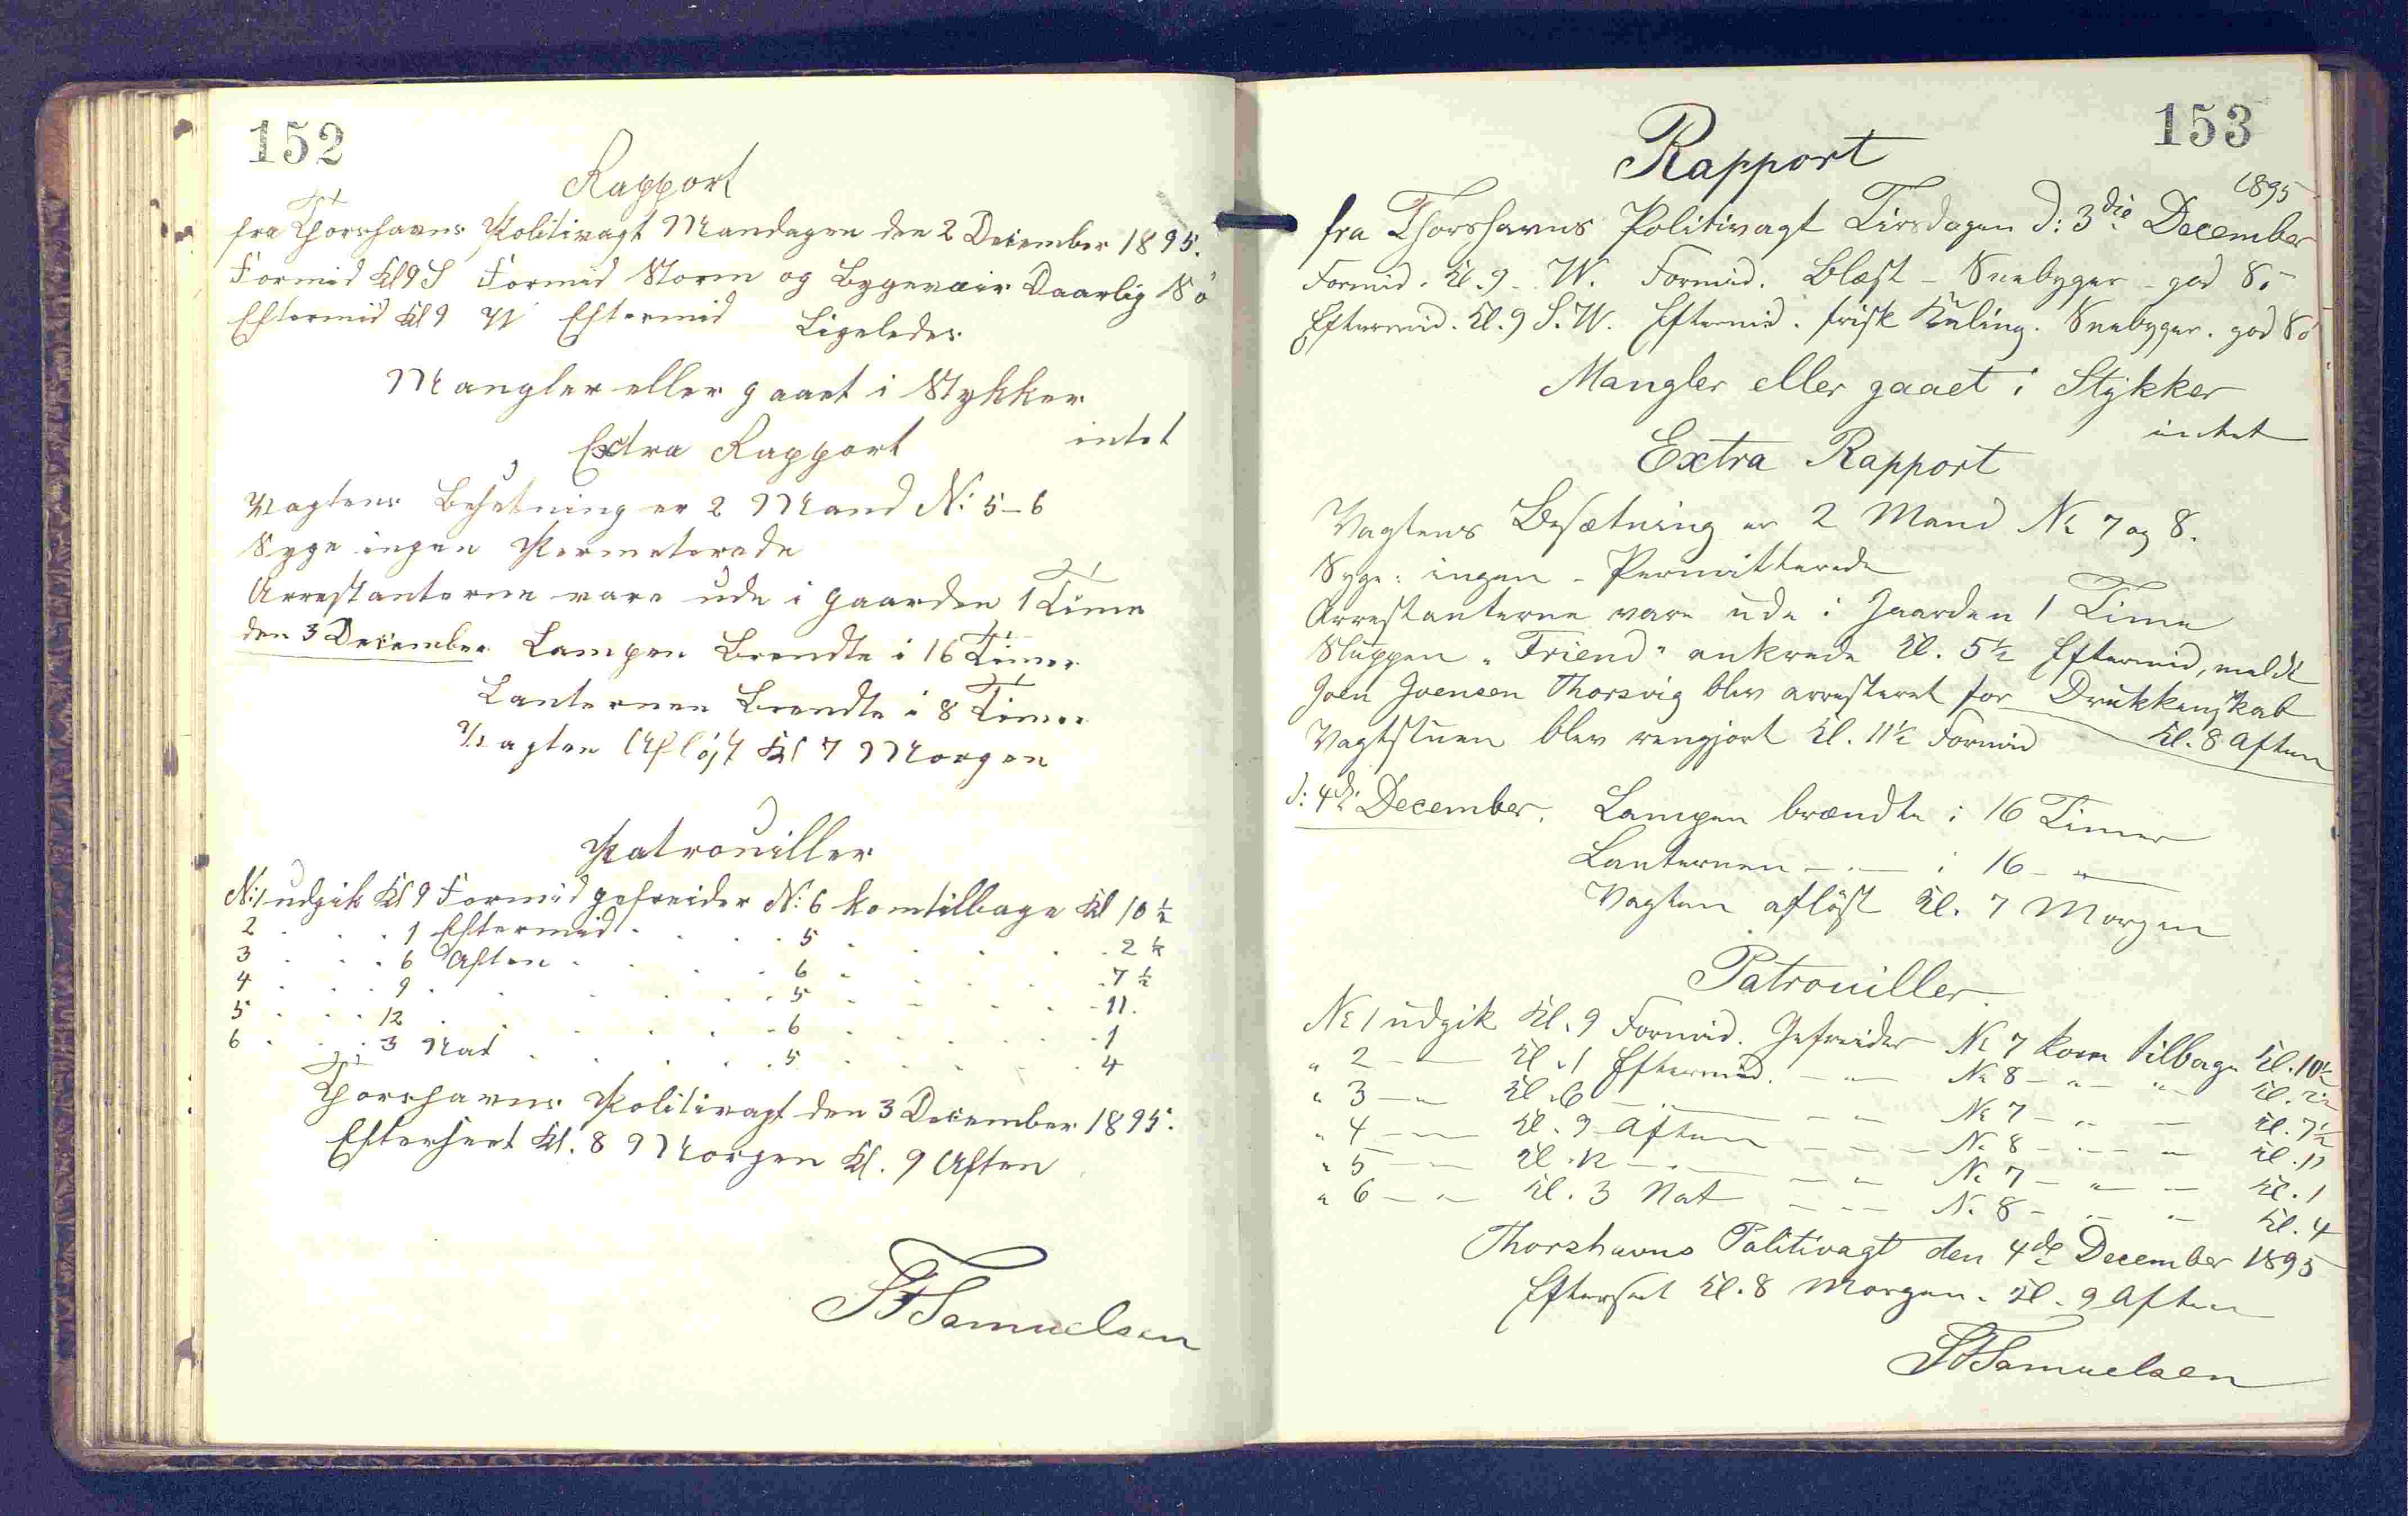 152
Rapport
fra Thorshavns Politivagt Mandagen den 2 December 1895.
Formid Kl 9 S Formid Storm og Bygevair Daarlig Sö
Eftermid Kl 9 W Eftermid Ligeledes
Mangler eller gaaet i Stykker
intet
Extra Rapport
Vagtens Besetning er 2 Mand N: 5-6
Syge ingen Permeterede
Arrestanterne vare ude i Gaarden 1 Time
den 3 December Lampen Brendte i 16 Timer
Lanternen Brendte i 8 Timer
Vagten Aflöst Kl 7 Morgen
Patrouiller
N: 1 udgik Kl 9 Formid gefreider N: 6 kom tilbage Kl 10 ½
2 . . . 1 Eftermid . . . 5 . . . 2 ½
3 . . . 6 Aften . . . 6 . . . 7 ½
4 . . . 9 . . . 5 . . . 11.
5 . . . 12 . . . 6 . . . 1
6 . . . 3 Nat . . . 5 . . . 4
Thorshavns Politivagt den 3 December 1895.
Efterseet Kl. 8 Morgen Kl. 9 Aften
Samuelsen
153
Rapport
1895
fra Thorshavns Politivagt Tirsdagen d: 3die December
Formid. Kl. 9 - W. Formid. Blæst - Sneebyger - god Sö
Eftermid. Kl. 9 S.W. Eftermid. frisk Kuling. Sneebyger. god Sö
Mangler eller gaaet i Stykker
intet
Extra Rapport
Vagtens Besætning er 2 Mand No 7 og 8.
Syge: ingen - Permitterede
Arrestanterne vare ude i Gaarden 1 Time
Sluppen "Friend" ankrede Kl. 5½ Eftermid, meldt
Joen Joensen Thorsvig blev arresteret for Drukkenskab
Kl. 8 Aften
Vagtstuen blev rengjort Kl. 11½ Formid
d: 4de December. Lampen brændte i 16 Timer
Lanternen - " - i 16 - " -
Vagten aflöst Kl. 7 Morgen
Patrouiller.
No 1 udgik Kl. 9 Formid. Gefreider No 7 kom tilbage Kl. 10½
" 2 - " - Kl. 1 Eftermid. - " - No 8 - " - " Kl. 2½
" 3 - " - Kl. 6 - " - - " - No 7 - " - Kl. 7½
" 4 - " - Kl. 9 Aften - " - No 8 - " - " Kl. 11
" 5 - " - Kl. 12 - " - - " - No 7 - " - Kl. 1
" 6 - " - Kl. 3 Nat - " - No 8 - " - " Kl. 4
Thorshavns Politivagt den 4de December 1895
Efterseet Kl. 8 Morgen. Kl. 9 Aften
Samuelsen